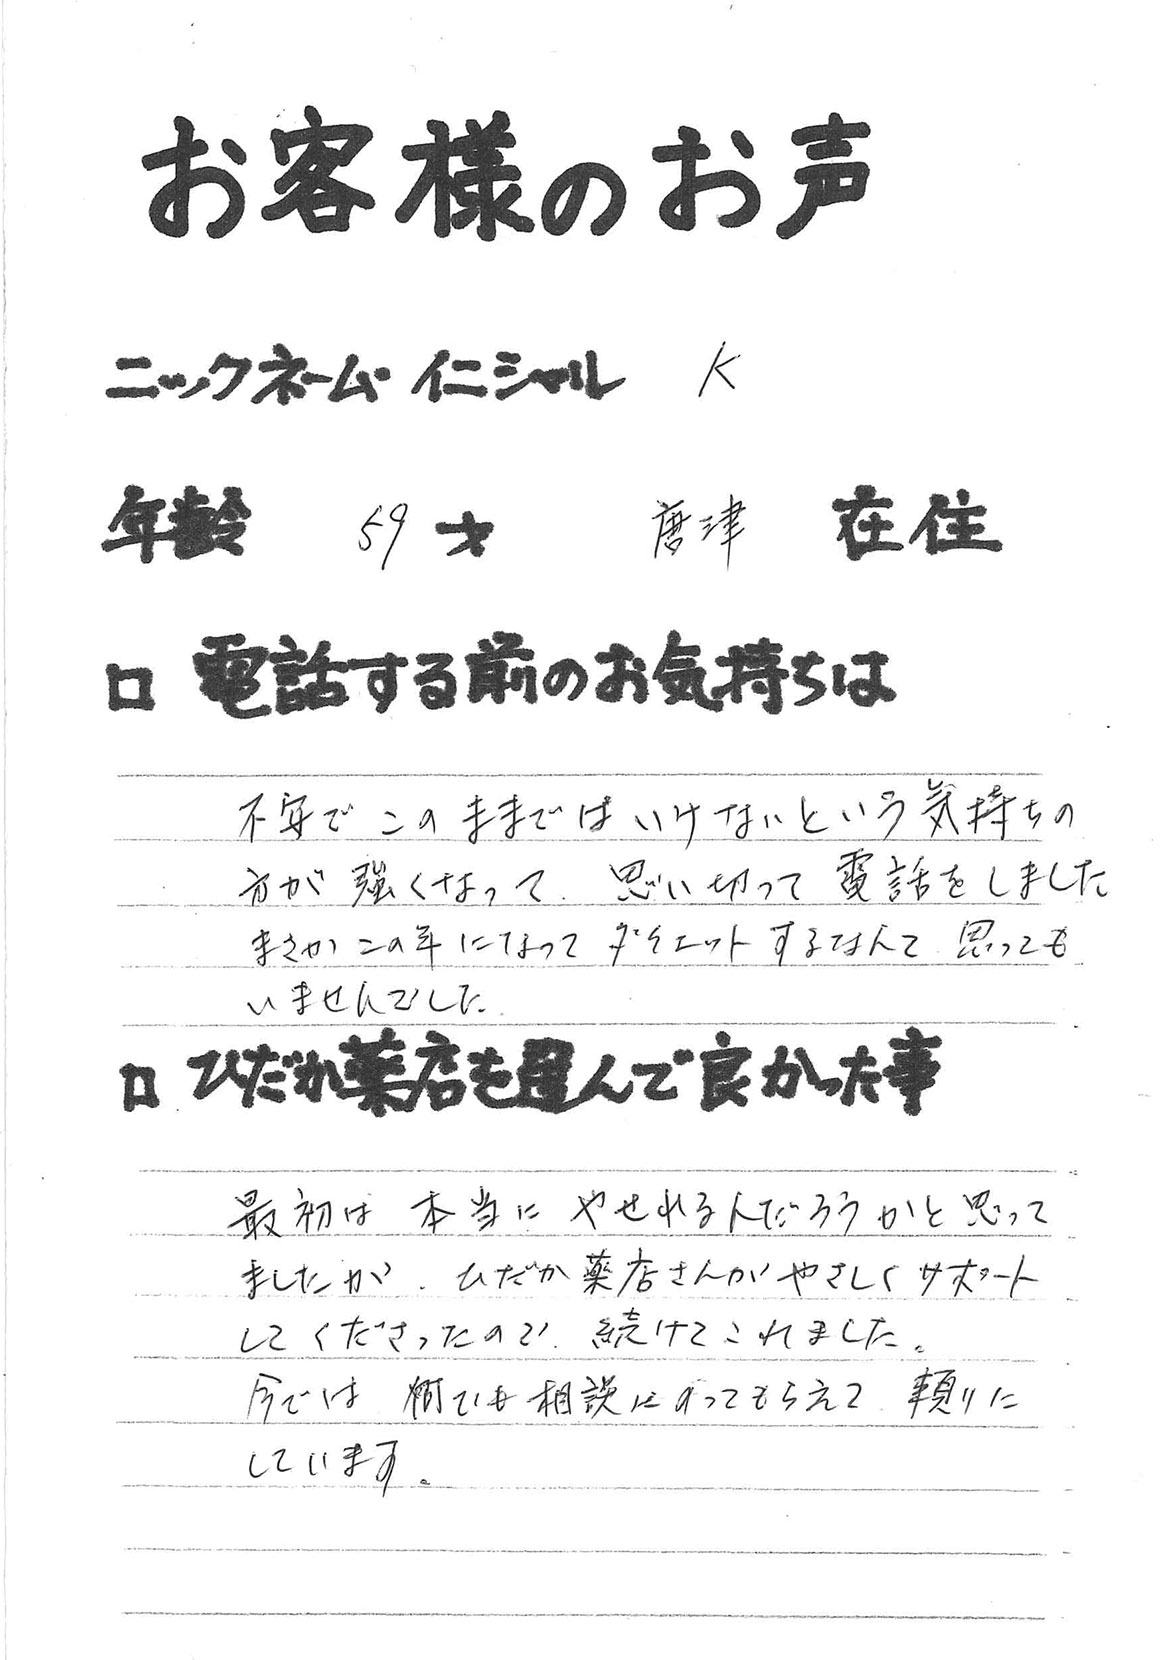 お客様のお声
ニックネーム イニシャル K
年齢 59 才 唐津 在住
□ 電話する前のお気持ちは
不安で このままではいけないという気持ちの
方が 強くなって. 思い切って 電話をしました
まさか この年になって ダイエットするなんて 思っても
いませんでした.
□ ひだか薬店を選んで良かった事
最初は 本当に やせれるんだろうかと思って
ましたが. ひだか薬店さんが やさしく サポート
してくださったので. 続けてこれました。
今では 何でも相談にのってもらえて 頼りに
しています。